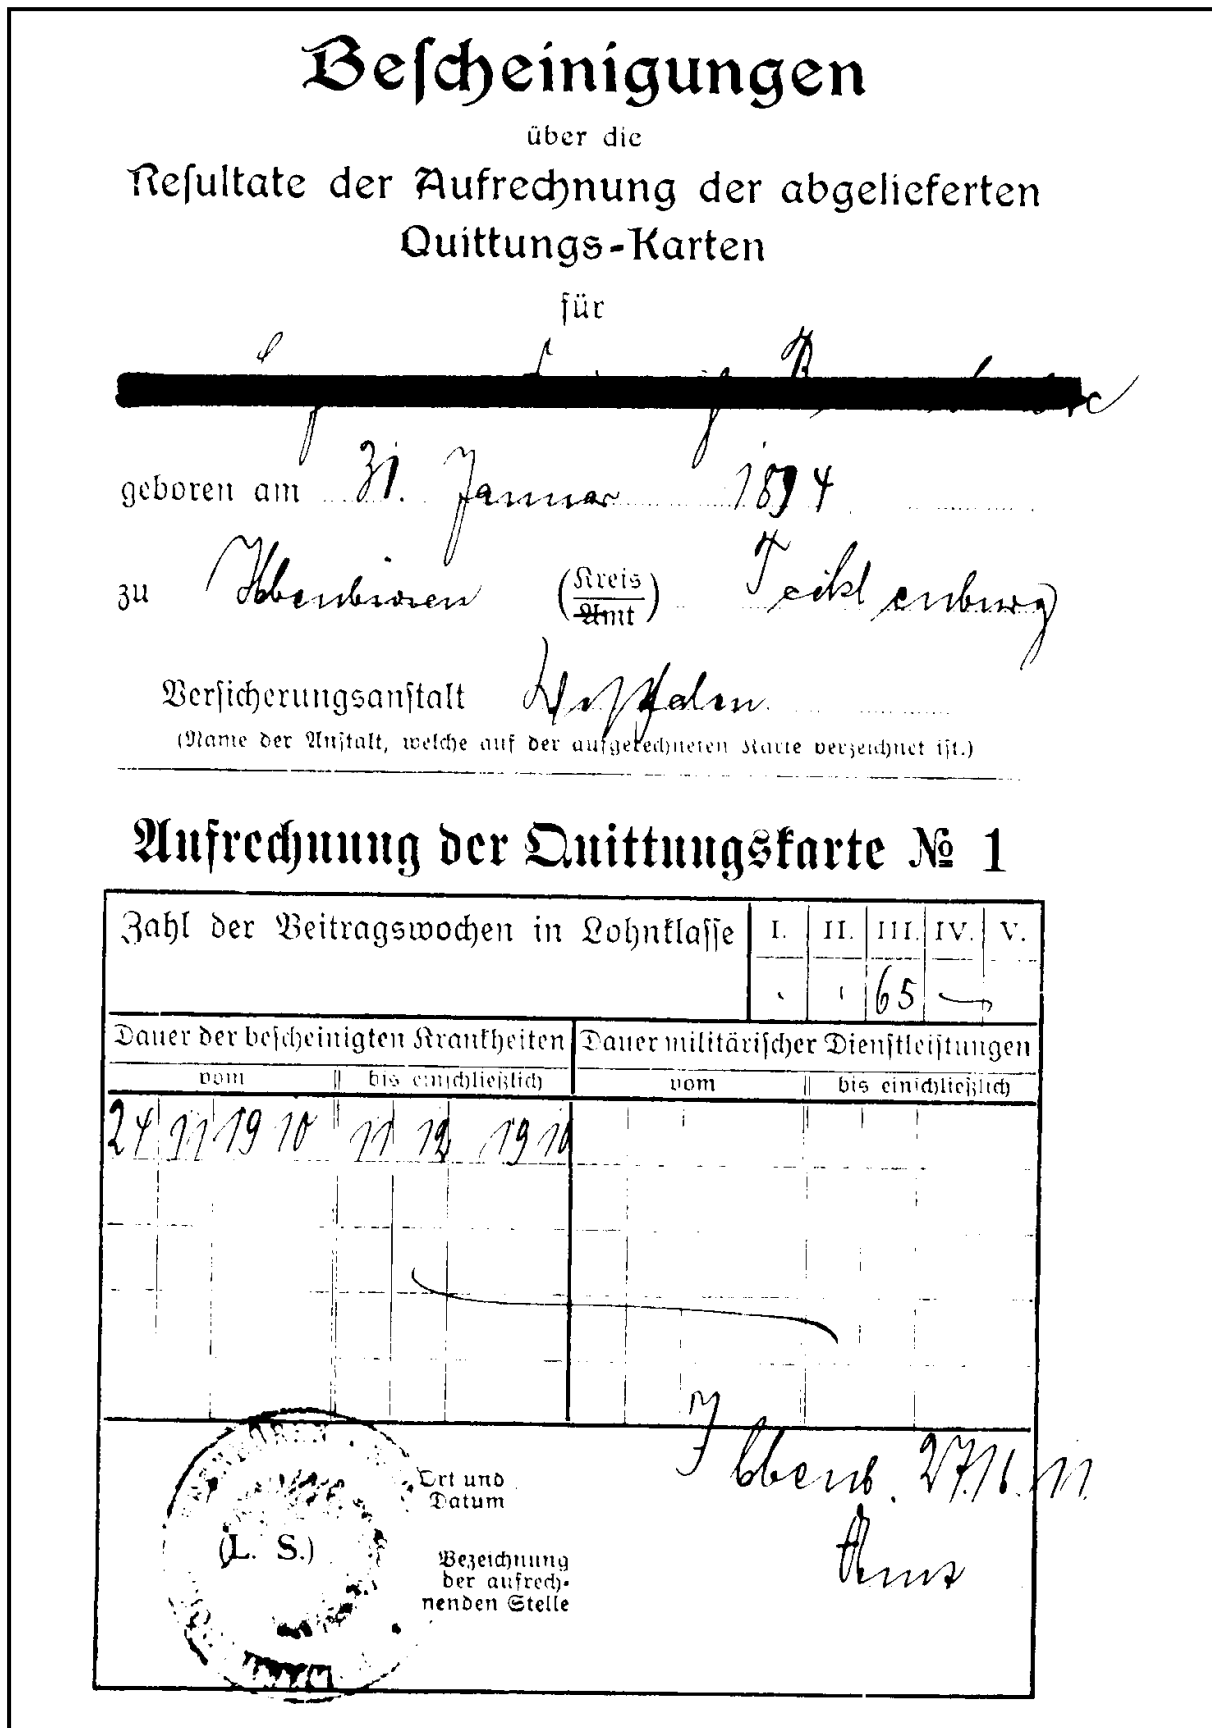 Bescheinigungen
über die
Resultate der Aufrechnung der abgelieferten
Quittungs-Karten
für
geboren am 31. Januar 1894
zu Ibbenbüren (Kreis/Amt) Tecklenburg
Versicherungsanstalt Westfalen.
(Name der Anstalt, welche auf der aufgerechneten Karte verzeichnet ist.)
Aufrechnung der Quittungskarte № 1
Zahl der Beitragswochen in Lohnklasse I. II. III. IV. V.
65
Dauer der bescheinigten Krankheiten Dauer militärischer Dienstleistungen
vom bis einschließlich vom bis einschließlich
24 11 1910 11 12 1910
Ort und
Datum
Ibbenb.
(L. S.)
Bezeichnung
der aufrech-
nenden Stelle
Amt